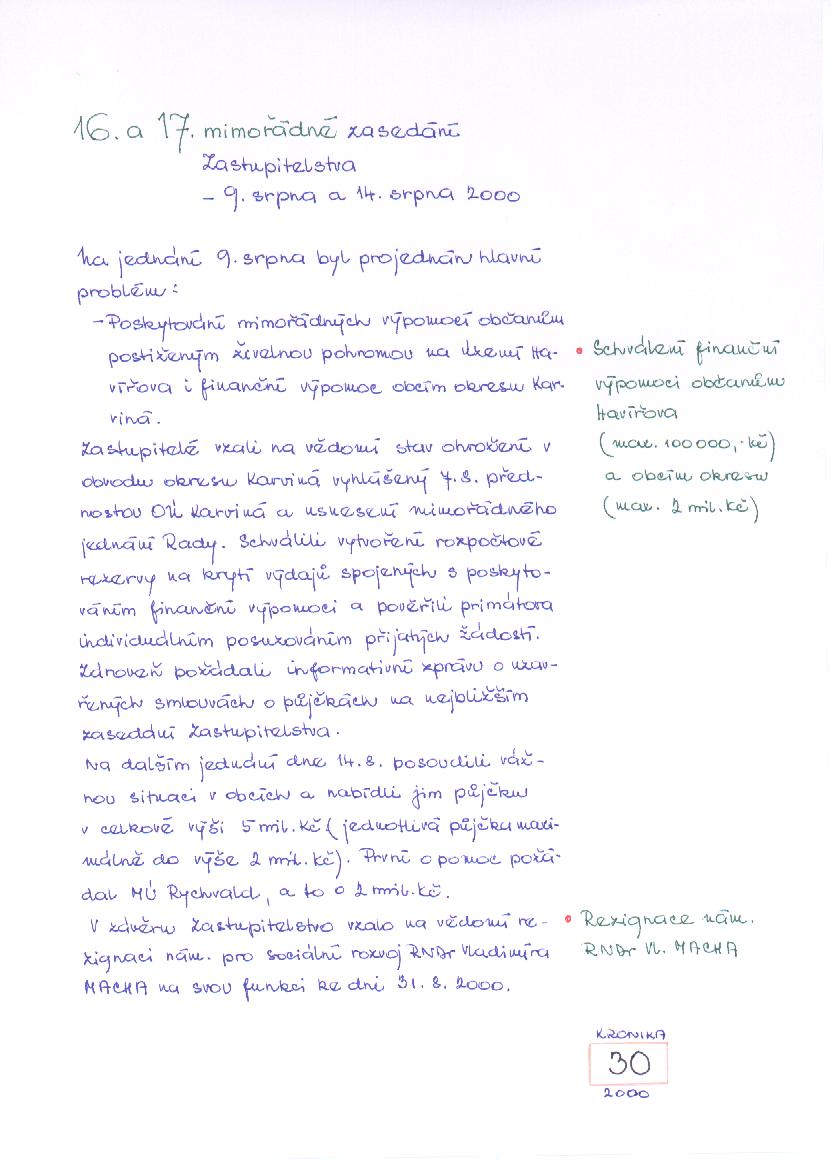 16. a 17. mimořádné zasedání
Zastupitelstva
– 9. srpna a 14. srpna 2000
Na jednání 9. srpna byl projednán hlavní
problém:
– Poskytování mimořádných výpomocí občanům
postiženým živelnou pohromou na území Ha-
vířova i finanční výpomoc obcím okresu Kar-
viná.
Zastupitelé vzali na vědomí stav ohrožení v
obvodu okresu Karviná vyhlášený 7.8. před-
nostou OÚ Karviná a usnesení mimořádného
jednání Rady. Schválili vytvoření rozpočtové
rezervy na krytí výdajů spojených s poskyto-
váním finanční výpomoci a pověřili primátora
individuálním posuzováním přijatých žádostí.
Zároveň požádali informativní zprávu o uzav-
řených smlouvách o půjčkách na nejbližším
zasedání Zastupitelstva.
Na dalším jednání dne 14.8. posoudili váž-
nou situaci v obcích a nabídli jim půjčku
v celkové výši 5 mil. Kč (jednotlivá půjčka maxi-
málně do výše 2 mil. Kč). První o pomoc požá-
dal MÚ Rychvald, a to o 2 mil. Kč.
V závěru Zastupitelstvo vzalo na vědomí re-
zignaci nám. pro sociální rozvoj RNDr Vladimíra
MACHA na svou funkci ke dni 31.8.2000.
• Schválení finanční
výpomoci občanům
Havířova
(max. 100 000,- Kč)
a obcím okresu
(max. 2 mil. Kč)
• Rezignace nám.
RNDr Vl. MACHA
KRONIKA
30
2000